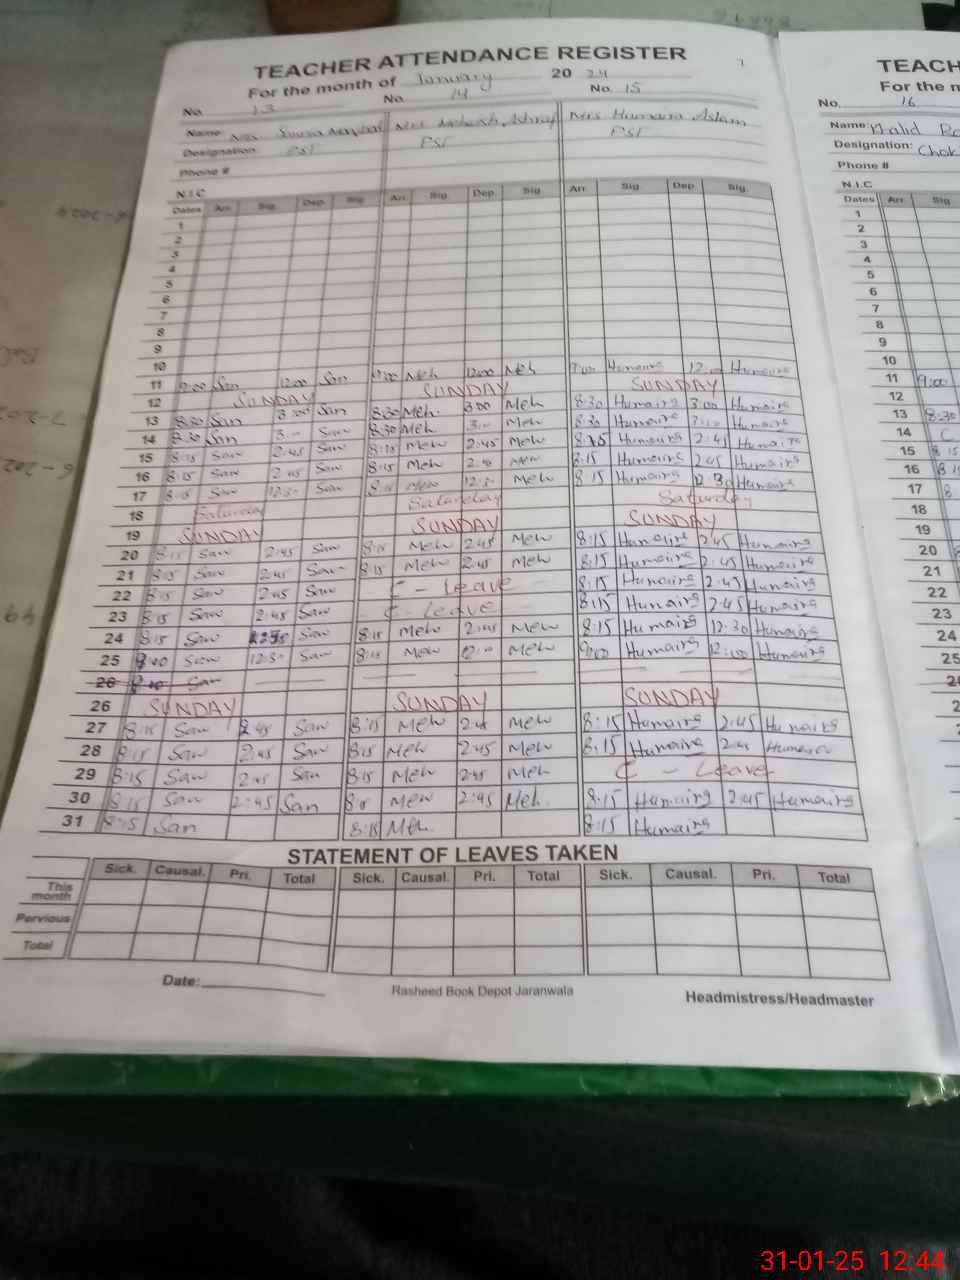 TEACHER ATTENDANCE REGISTER
For the month of January 20 24
No. 13 No. 14 No. 15
Name: Mrs Mrs Mehwish Ashraf Mrs Humaira Aslam
Designation: PST PST PST
Phone #
N.I.C
Dates Arr. Sig. Dep. Sig. Arr. Sig. Dep. Sig. Arr. Sig. Dep. Sig.
1
2
3
4
5
6
7
8
9
10
11 9:00 San 12:00 San 9:00 Meh 12:00 Meh 9:00 Humaira 12:00 Humaira
12 SUNDAY SUNDAY SUNDAY
13 8:30 San 3:00 San 8:30 Meh 3:00 Meh 8:30 Humaira 3:00 Humaira
14 8:30 San 3:00 San 8:30 Meh 3:00 Meh 8:30 Humaira 3:00 Humaira
15 8:15 San 2:45 San 8:15 Meh 2:45 Meh 8:15 Humaira 2:45 Humaira
16 8:15 San 2:45 San 8:15 Meh 2:45 Meh 8:15 Humaira 2:45 Humaira
17 8:15 San 12:30 San 8:15 Meh 12:30 Meh 8:15 Humaira 12:30 Humaira
18 Saturday Saturday Saturday
19 SUNDAY SUNDAY SUNDAY
20 8:15 San 2:45 San 8:15 Meh 2:45 Meh 8:15 Humaira 2:45 Humaira
21 8:15 San 2:45 San 8:15 Meh 2:45 Meh 8:15 Humaira 2:45 Humaira
22 8:15 San 2:45 San C - Leave 8:15 Humaira 2:45 Humaira
23 8:15 San 2:45 San C - Leave 8:15 Humaira 2:45 Humaira
24 8:15 San San 8:15 Meh 2:45 Meh 8:15 Humaira 12:30 Humaira
25 8:00 San 12:30 San 8:15 Meh 12:00 Meh 9:00 Humaira 12:00 Humaira
26 8:00 San
26 SUNDAY SUNDAY SUNDAY
27 8:15 San 2:45 San 8:15 Meh 2:45 Meh 8:15 Humaira 2:45 Humaira
28 8:15 San 2:45 San 8:15 Meh 2:45 Meh 8:15 Humaira 2:45 Humaira
29 8:15 San 2:45 San 8:15 Meh 2:45 Meh C - Leave
30 8:15 San 2:45 San 8:15 Meh 2:45 Meh. 8:15 Humaira 2:45 Humaira
31 8:15 San 8:15 Meh. 8:15 Humaira
STATEMENT OF LEAVES TAKEN
Sick. Causal. Pri. Total Sick. Causal. Pri. Total Sick. Causal. Pri. Total
This month
Pervious
Total
Date:
Rasheed Book Depot Jaranwala
Headmistress/Headmaster
TEACH
For the m
No. 16
Name:
Designation: Chok
Phone #
N.I.C
Dates Arr. Sig
1
2
3
4
5
6
7
8
9
10
11 9:00
12
13 8:30
14 C
15 8:15
16 8:15
17 8
18
19
20 8
21
22
23
24
25
31-01-25 12:44